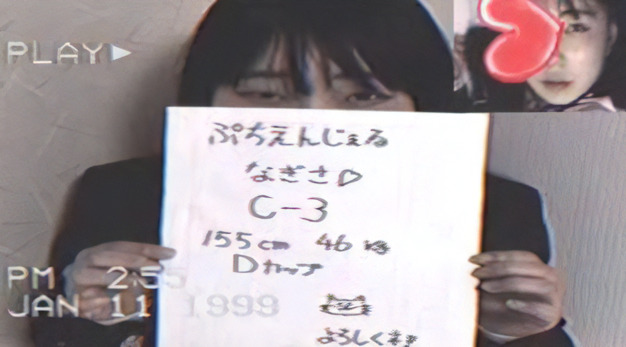 PLAY▶
ぷちえんじぇる
なぎさ♡
C-3
155cm 46kg
Dカップ
よろしくネ
PM 2:55
JAN. 11 1999